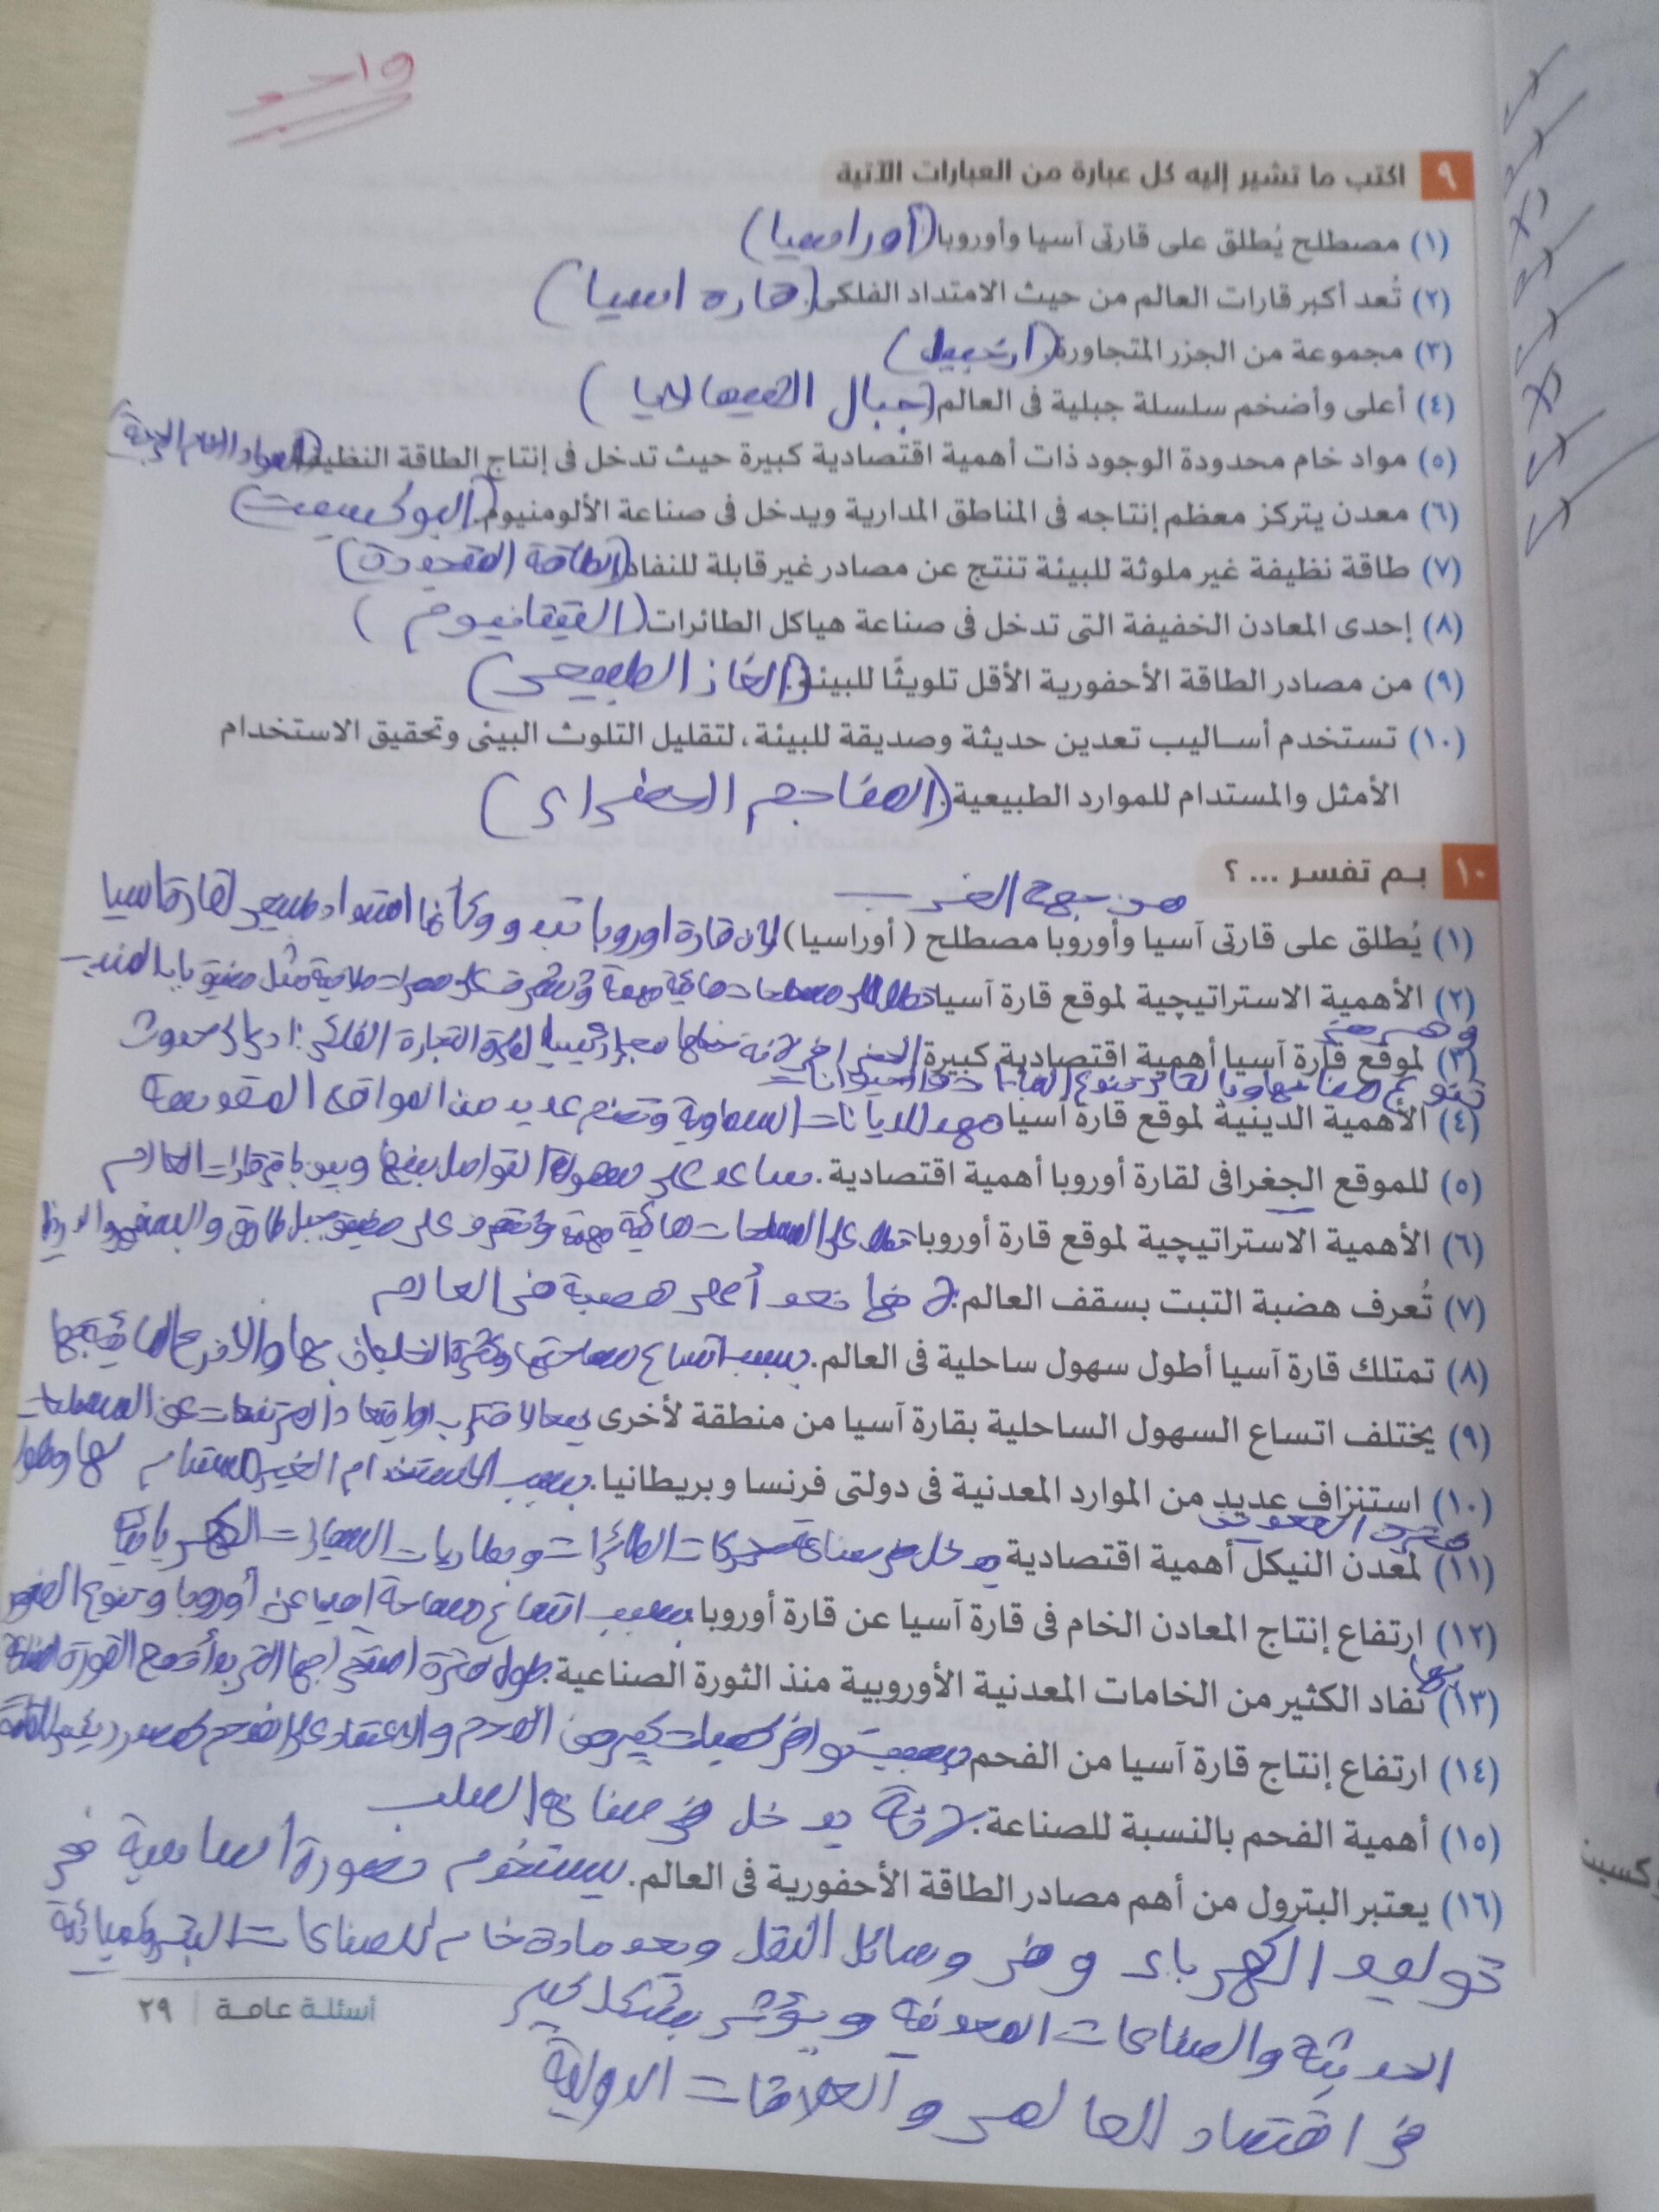 واحد
٩ اكتب ما تشير إليه كل عبارة من العبارات الآتية
(١) مصطلح يُطلق على قارتى آسيا وأوروبا (أوراسيا)
(٢) تُعد أكبر قارات العالم من حيث الامتداد الفلكى. (قاره اسيا)
(٣) مجموعة من الجزر المتجاورة. (ارخبيل)
(٤) أعلى وأضخم سلسلة جبلية فى العالم (جبال الهيمالايا)
(٥) مواد خام محدودة الوجود ذات أهمية اقتصادية كبيرة حيث تدخل فى إنتاج الطاقة النظيفة (المواد الخام الحرجة)
(٦) معدن يتركز معظم إنتاجه فى المناطق المدارية ويدخل فى صناعة الألومنيوم. (البوكسيت)
(٧) طاقة نظيفة غير ملوثة للبيئة تنتج عن مصادر غير قابلة للنفاد (الطاقة المتجددة)
(٨) إحدى المعادن الخفيفة التى تدخل فى صناعة هياكل الطائرات (التيتانيوم)
(٩) من مصادر الطاقة الأحفورية الأقل تلويثًا للبيئة. (الغاز الطبيعى)
(١٠) تستخدم أساليب تعدين حديثة وصديقة للبيئة، لتقليل التلوث البيئى وتحقيق الاستخدام
الأمثل والمستدام للموارد الطبيعية. (المناجم الخضراء)
١٠ بم تفسر ... ؟
من جهة الغرب
(١) يُطلق على قارتى آسيا وأوروبا مصطلح (أوراسيا) لان قارة اوروبا تبدو وكأنها امتداد طبيعى لقارة اسيا
(٢) الأهمية الاستراتيچية لموقع قارة آسيا تطل على مسطحات مائية مهمة وتشرف على ممرات ملاحية مثل مضيق باب المندب
وهرمز
(٣) لموقع قارة آسيا أهمية اقتصادية كبيرة الجغرافى لانه جعلها معبرا رئيسيا لطرق التجارة الفلكى: ادى الى حدوث
تنوع مناخها وبالتالى تنوع النباتات والحيوانات
(٤) الأهمية الدينية لموقع قارة آسيا مهد للديانات السماوية وتضم عديد من المواقع المقدسة
(٥) للموقع الجغرافى لقارة أوروبا أهمية اقتصادية. ساعد على سهولة التواصل بينها وبين باقى قارات العالم
(٦) الأهمية الاستراتيچية لموقع قارة أوروبا تطل على المسطحات مائية مهمة وتشرف على مضيق جبل طارق والبسفور والدردنيل
(٧) تُعرف هضبة التبت بسقف العالم. لانها تعد أعلى هضبة فى العالم
(٨) تمتلك قارة آسيا أطول سهول ساحلية فى العالم. بسبب اتساع مساحتها وكثرة الخلجان بها والاذرع المائية بها
(٩) يختلف اتساع السهول الساحلية بقارة آسيا من منطقة لأخرى تبعا لاقتراب او ابتعاد المرتفعات عن المسطحات
(١٠) استنزاف عديد من الموارد المعدنية فى دولتى فرنسا وبريطانيا. بسبب الاستخدام الغير مستدام لها وطول
فترة التعدين
(١١) لمعدن النيكل أهمية اقتصادية يدخل فى صناعة محركات الطائرات وبطاريات السيارات الكهربائية
(١٢) ارتفاع إنتاج المعادن الخام فى قارة آسيا عن قارة أوروبا بسبب اتساع مساحة اسيا عن أوروبا وتنوع الصخور
بها
(١٣) نفاد الكثير من الخامات المعدنية الأوروبية منذ الثورة الصناعية. طول فترة استخراجها التى بدأت مع الثورة الصناعية
(١٤) ارتفاع إنتاج قارة آسيا من الفحم بسبب توافر كميات كبيرة من الفحم والاعتماد على الفحم كمصدر رئيسى للطاقة
(١٥) أهمية الفحم بالنسبة للصناعة. لانه يدخل فى صناعة الصلب
(١٦) يعتبر البترول من أهم مصادر الطاقة الأحفورية فى العالم. يستخدم بصورة اساسية فى
توليد الكهرباء وفى وسائل النقل ويعد مادة خام للصناعات البتروكيميائية
أسئلة عامة | ٢٩
الحديثة والصناعات المعدنية ويؤثر بشكل كبير
فى اقتصاد العالمى والعلاقات الدولية